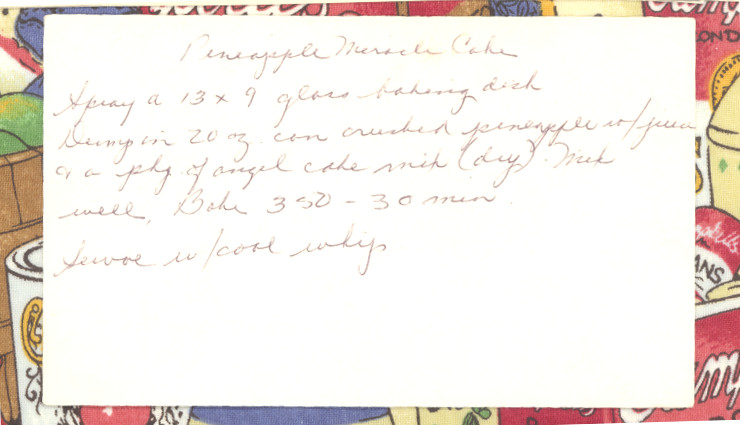 Pineapple Miracle Cake
Spray a 13 x 9 glass baking dish
Dump in 20 oz can crushed pineapple w/juice
& a pkg of angel cake mix (dry). Mix
well, Bake 350 - 30 min.
Serve w/cool whip
OND
ANS